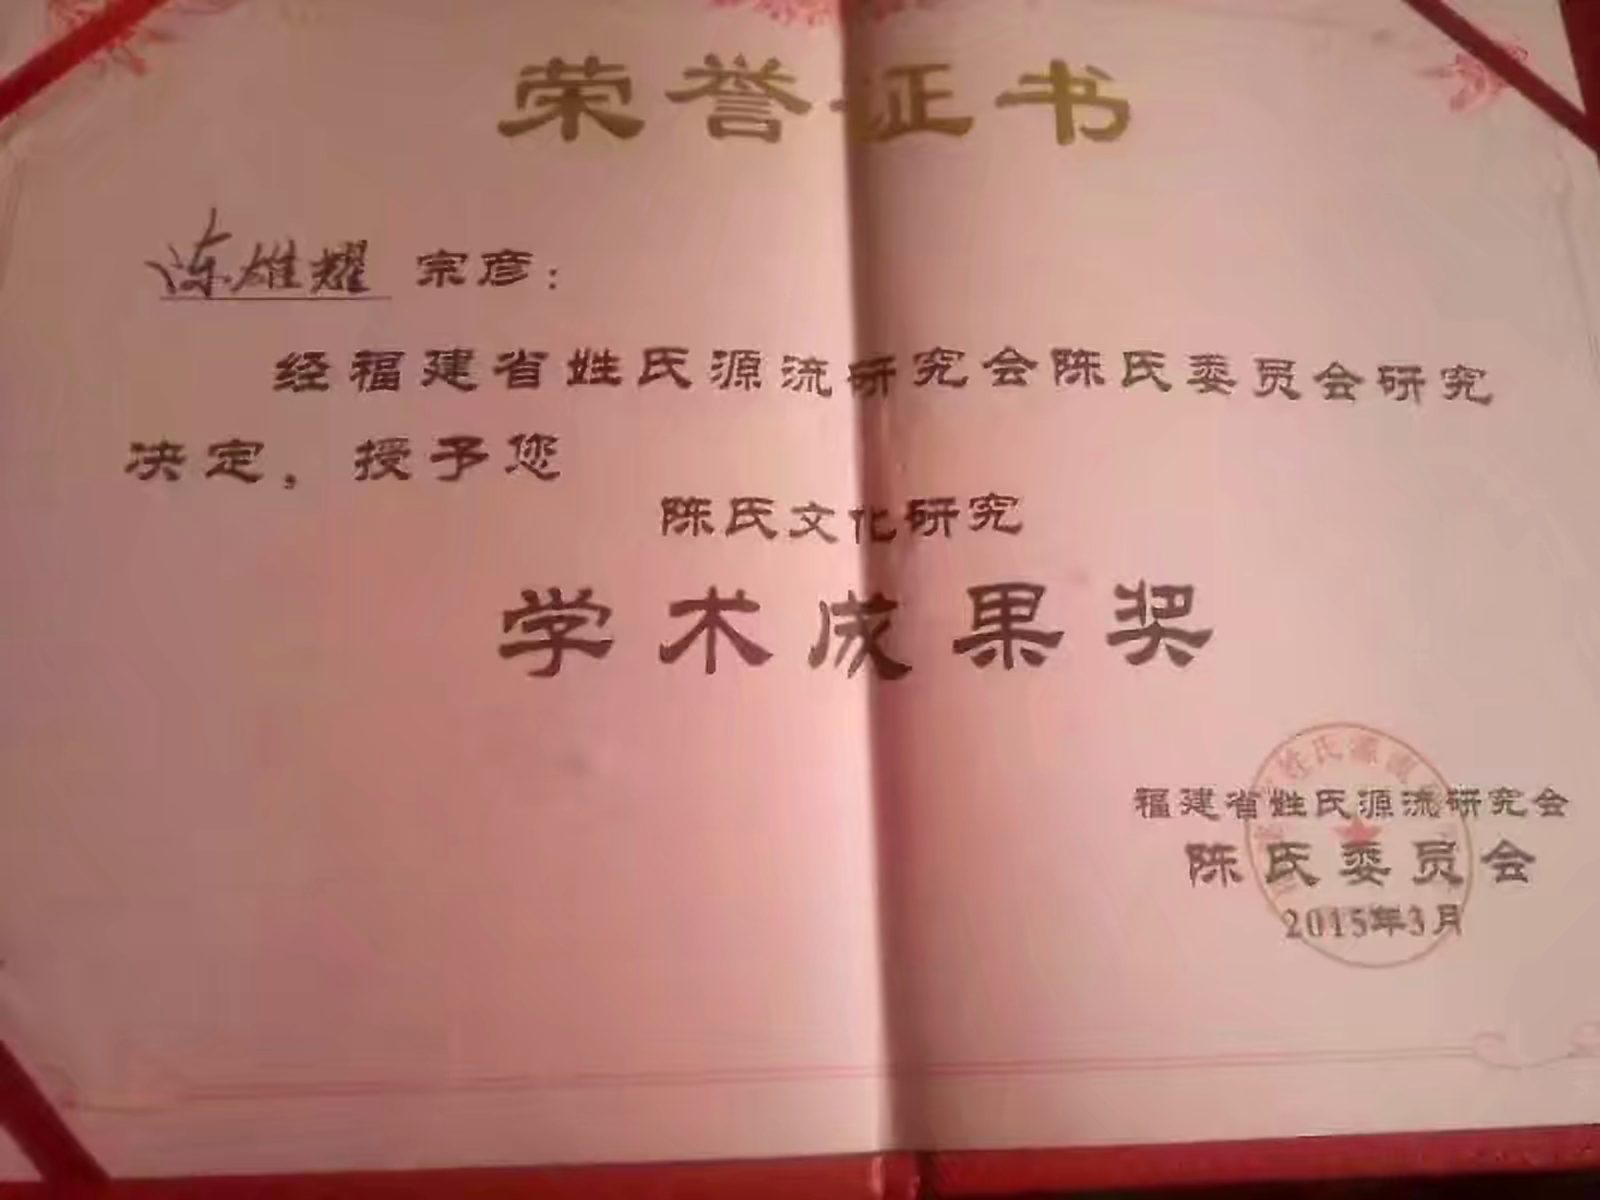 荣誉证书
陈雄耀 宗彦：
经福建省姓氏源流研究会陈氏委员会研究
决定，授予您
陈氏文化研究
学术成果奖
姓氏源流
福建省姓氏源流研究会
陈氏委员会
2015年3月